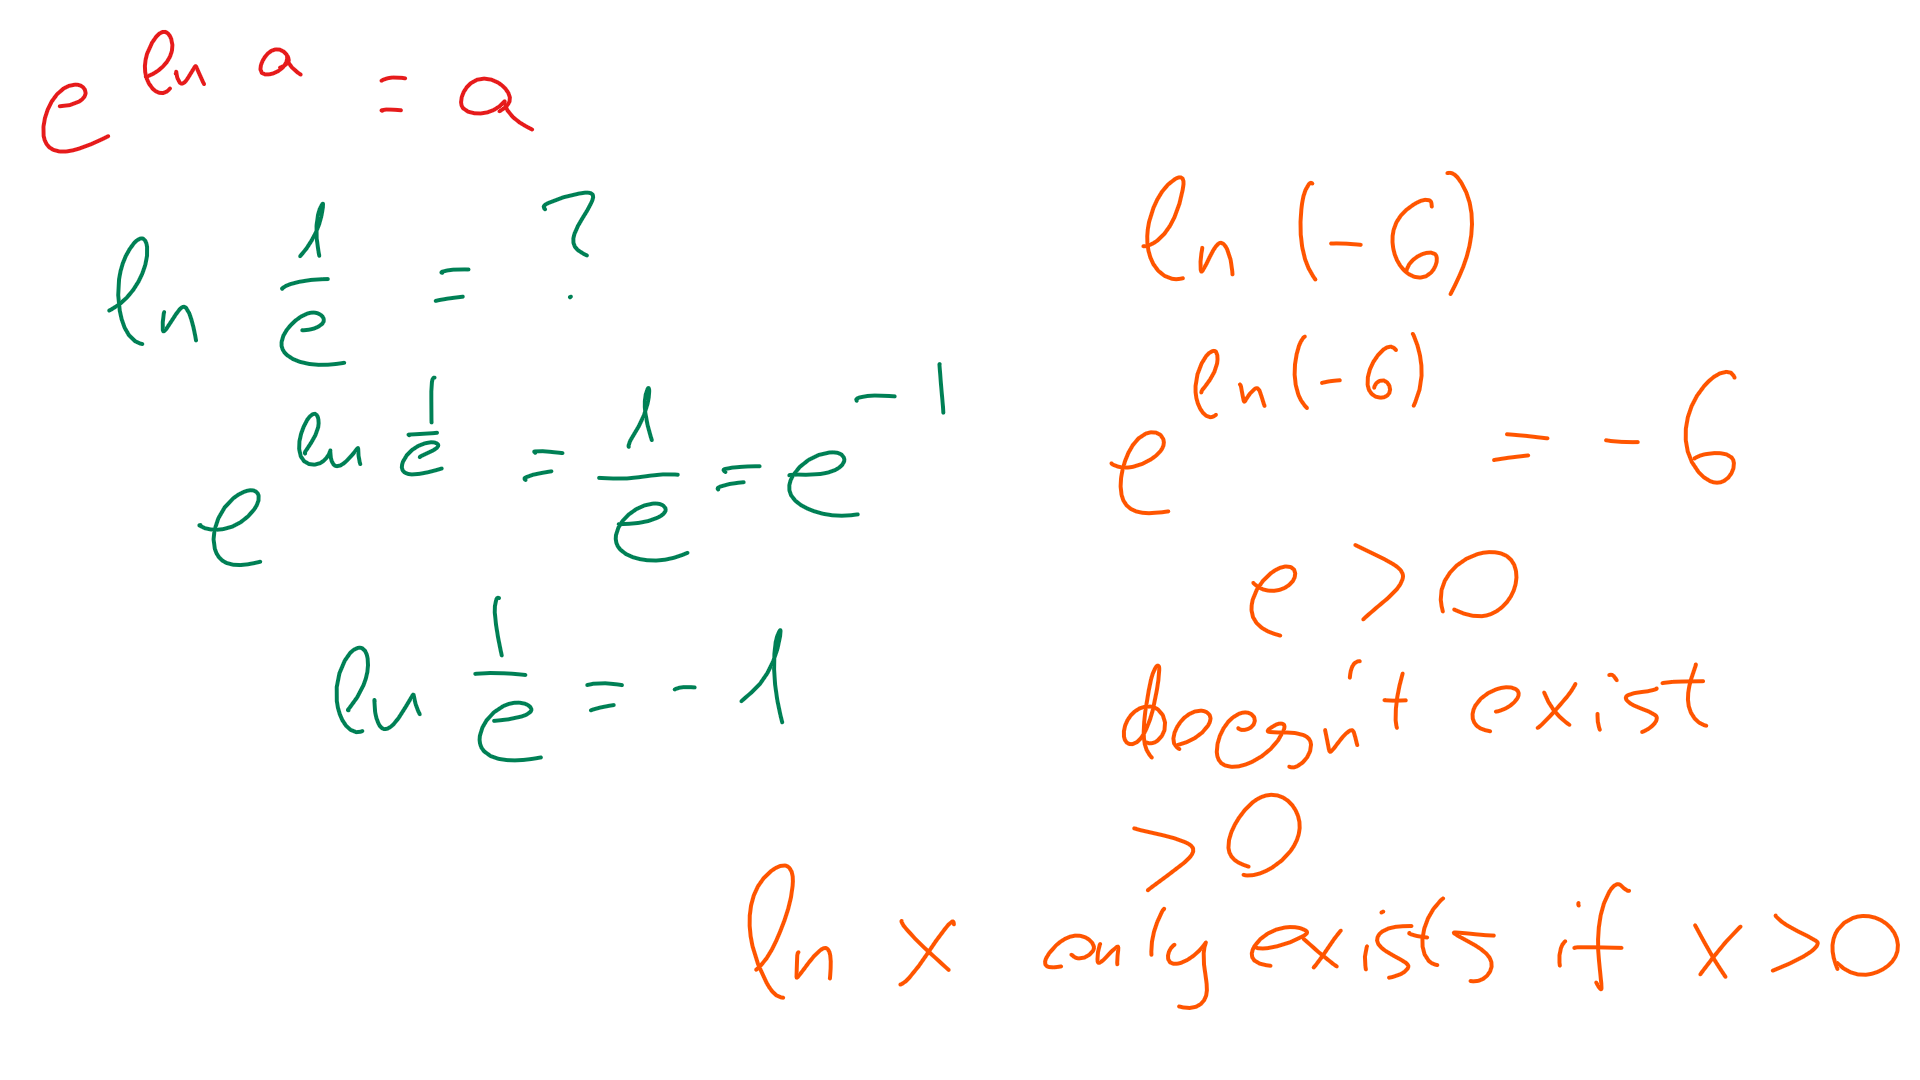 e^{ln a} = a
ln 1/e = ?
e^{ln 1/e} = 1/e = e^{-1}
ln 1/e = -1
ln (-6)
e^{ln(-6)} = -6
e > 0
doesn't exist
> 0
ln x only exists if x > 0